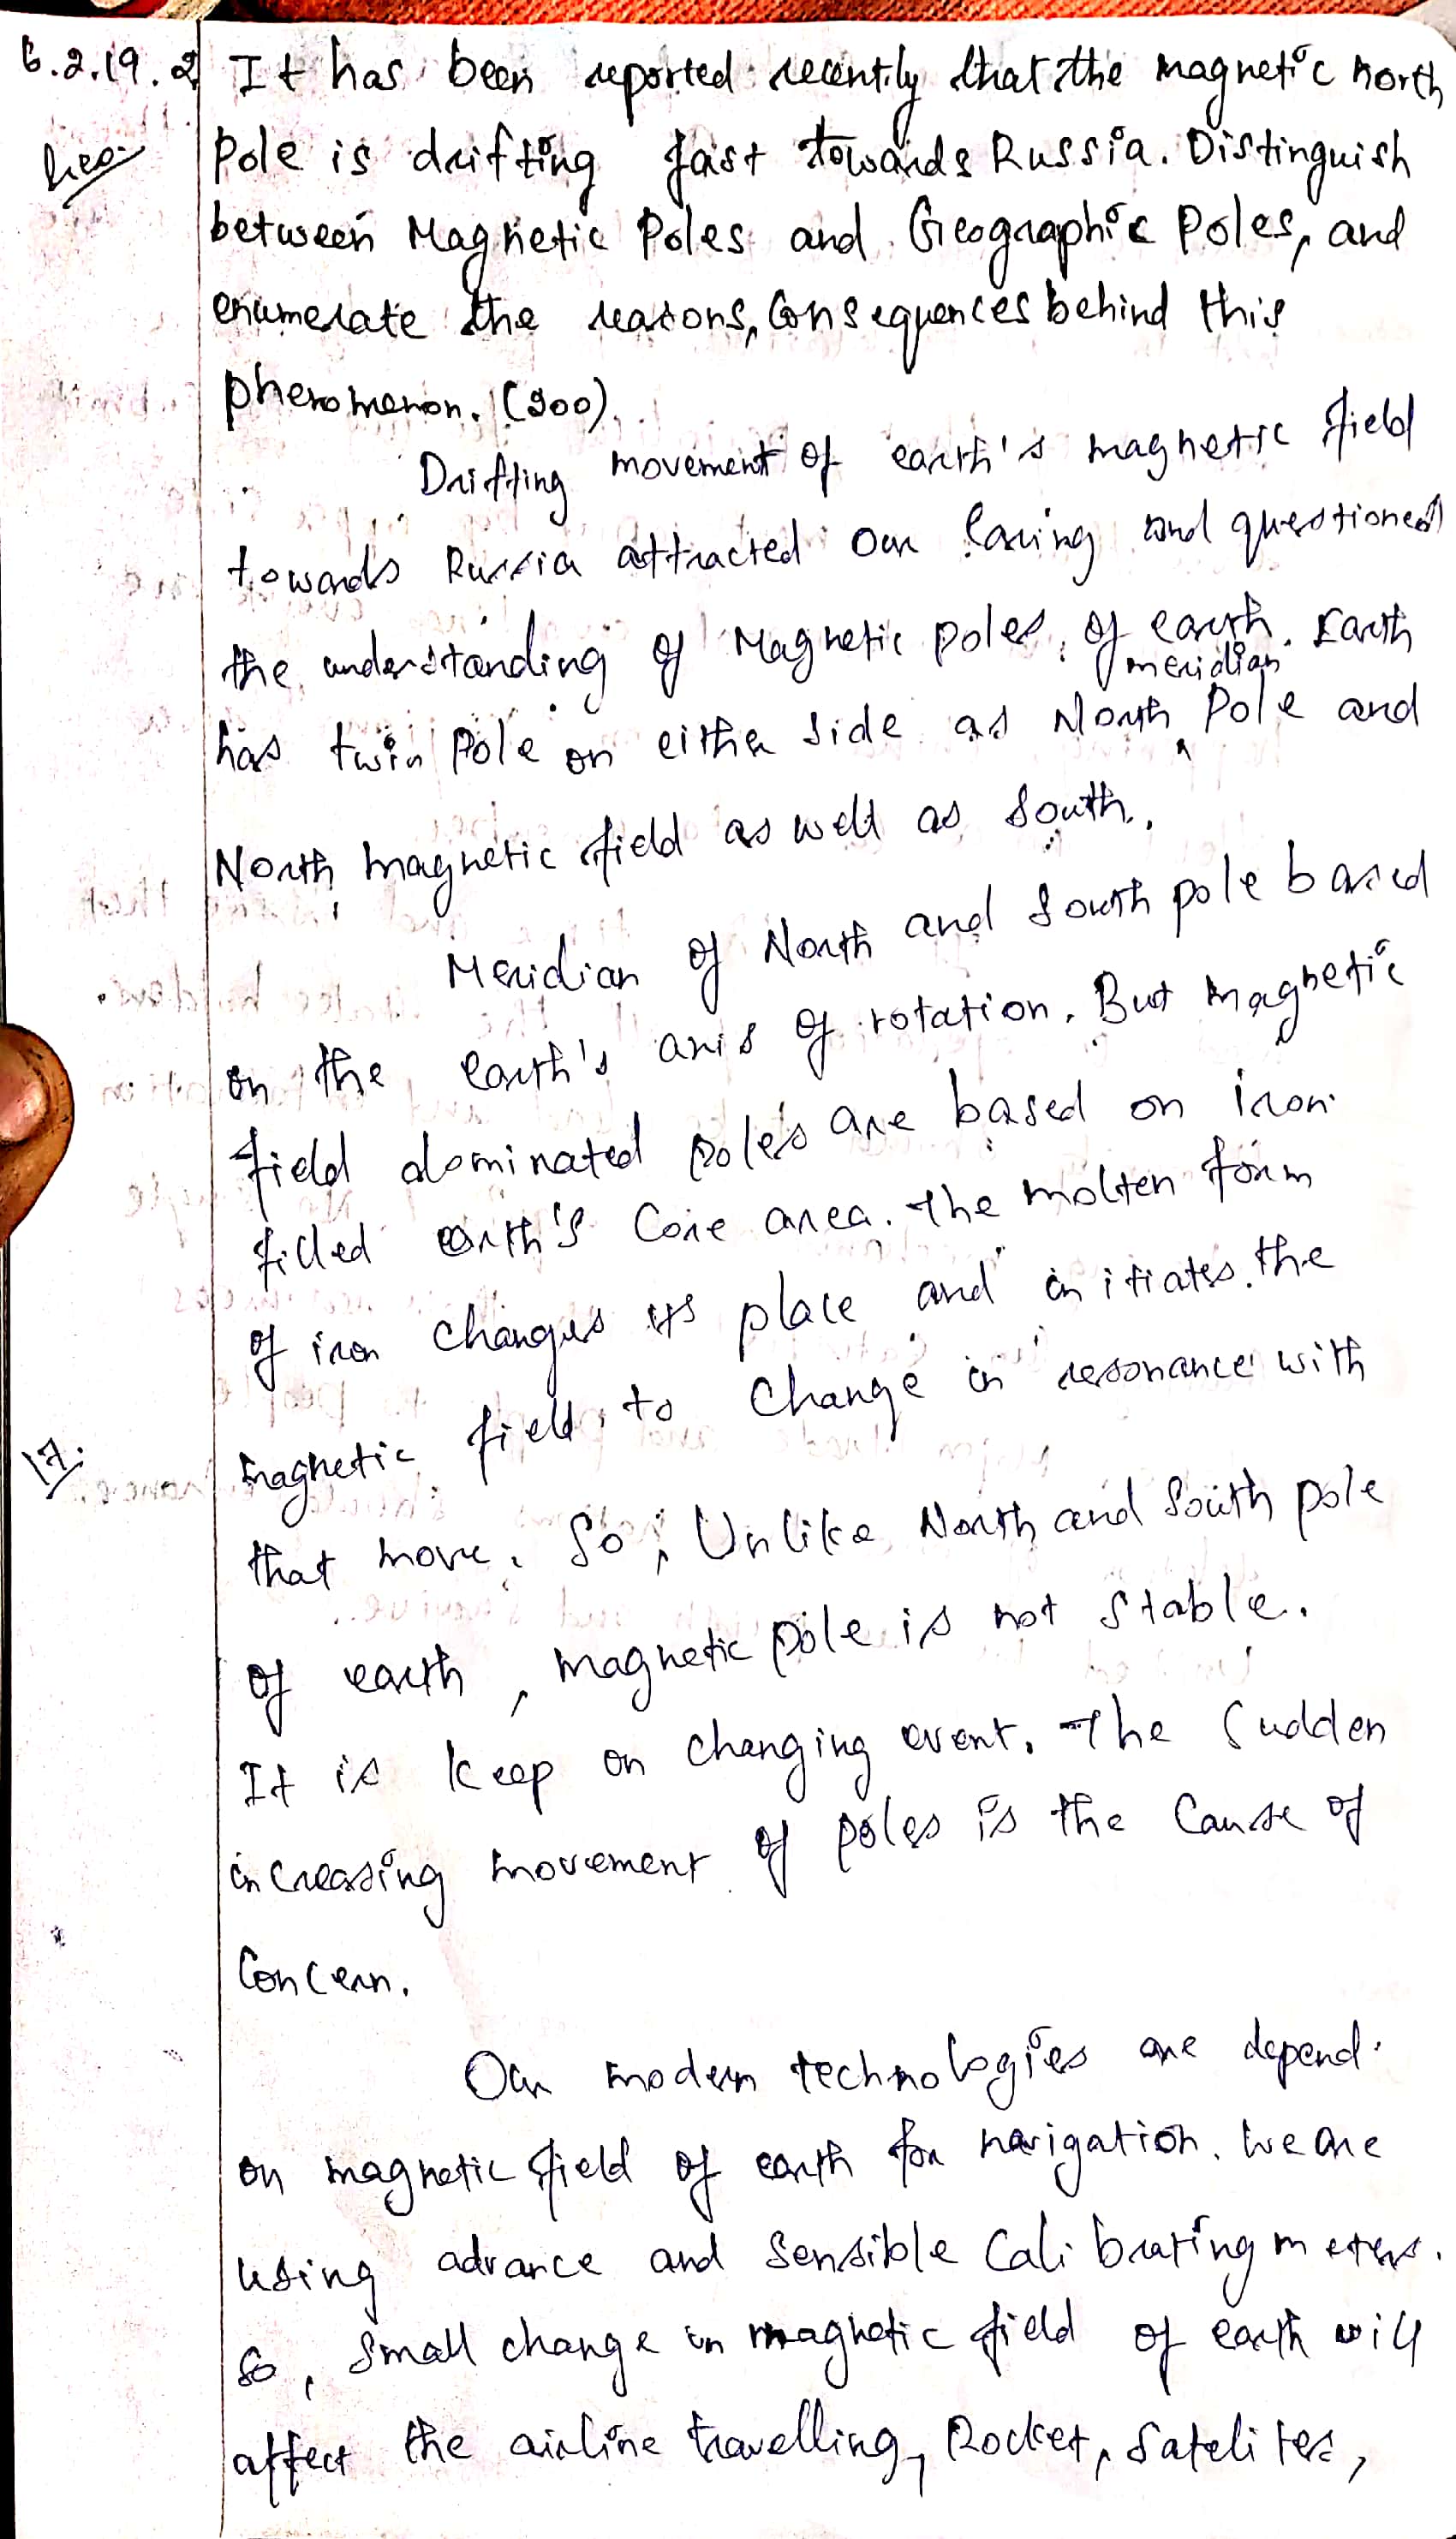 6.2.19. 2 It has been reported recently that the magnetic north
Geo. Pole is drifting fast towards Russia. Distinguish
between Magnetic Poles and Geographic Poles, and
enumerate the reasons, Consequences behind this
phenomenon. (200)
Drifting movement of earth's magnetic field
towards Russia attracted our and questioned
the understanding of Magnetic poles, of earth. Earth
has twin Pole on either side as North meridian Pole and
North magnetic field as well as South.
Meridian of North and South pole based
on the earth's axis of rotation. But magnetic
field dominated poles are based on iron
filled earth's Core area. The molten form
of iron changes its place and initiates the
magnetic field to change in resonance with
17.
that move. So, Unlike North and South pole
of earth, magnetic pole is not stable.
It is keep on changing event. The Sudden
increasing movement of poles is the Cause of
Concern.
Our modern technologies are depend
on magnetic field of earth for navigation. We are
using advance and Sensible Calibrating meters.
So, small change in magnetic field of earth will
affect the airline travelling, Rocket, Satelites,